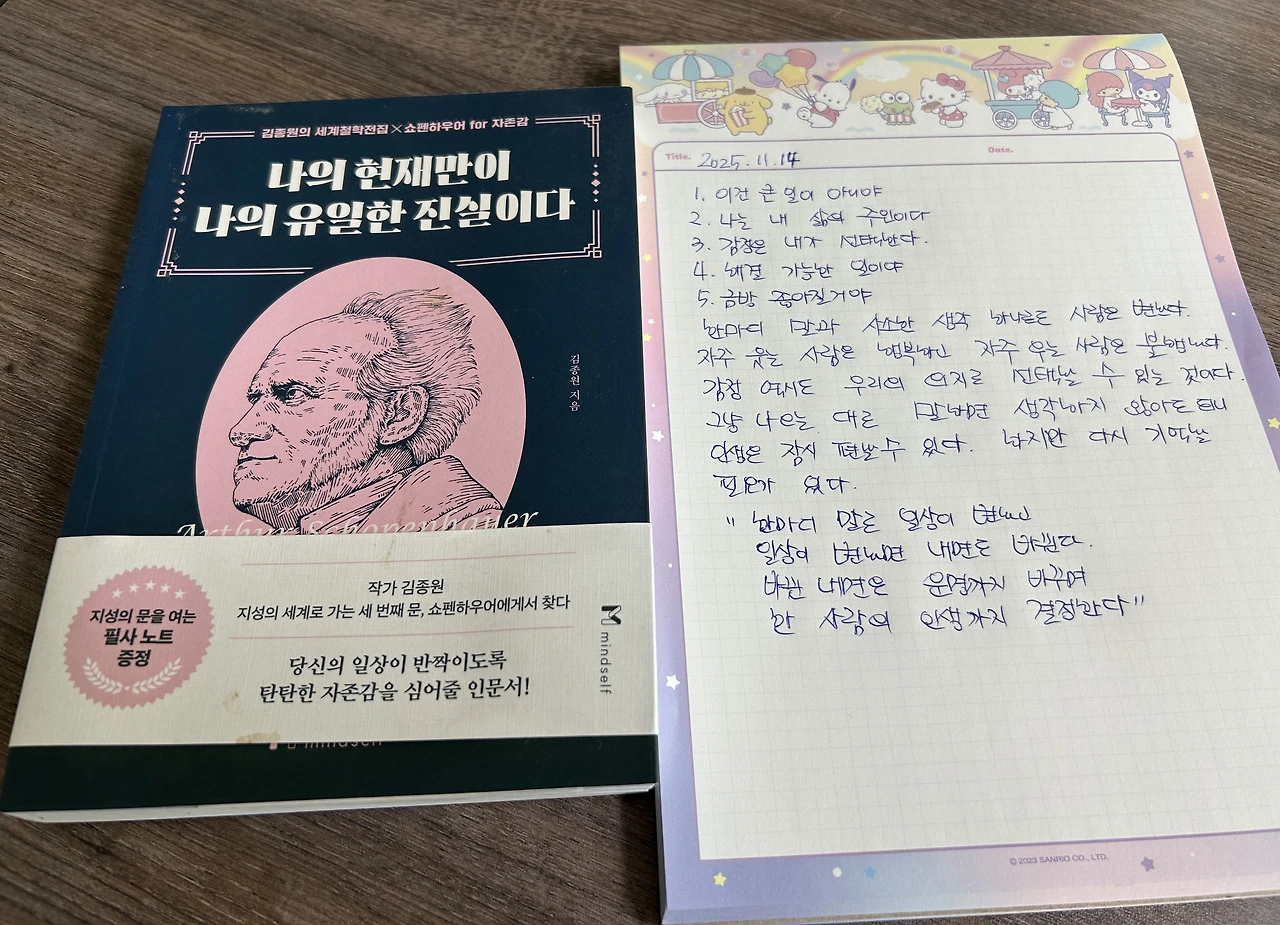 김종원의 세계철학전집×쇼펜하우어 for 자존감
나의 현재만이
나의 유일한 진실이다
김종원 지음
Arthur Schopenhauer
지성의 문을 여는
필사 노트
증정
작가 김종원
지성의 세계로 가는 세 번째 문, 쇼펜하우어에게서 찾다
당신의 일상이 반짝이도록
탄탄한 자존감을 심어줄 인문서!
mindself
mindself
Title. 2025.11.14 Date.
1. 이건 큰 일이 아니야
2. 나는 내 삶의 주인이다
3. 감정은 내가 선택한다.
4. 해결 가능한 일이야
5. 금방 좋아질거야
한마디 말과 사소한 생각 하나로도 사람은 변한다.
자주 웃는 사람은 행복하고 자주 우는 사람은 불행하다.
감정 역시도 우리의 의지로 선택할 수 있는 것이다.
그냥 나오는 대로 말하면 생각하지 않아도 되니
인생은 잠시 편할 수 있다. 하지만 다시 기억할
필요가 있다.
" 한마디 말로 일상이 변하고
일상이 변하면 내면도 바뀐다.
바뀐 내면은 운명까지 바꾸며
한 사람의 인생까지 결정한다"
© 2023 SANRIO CO., LTD.